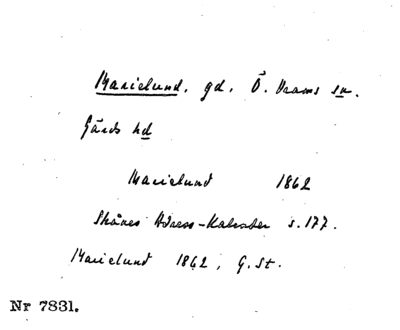 Marielund, gd, Ö. Vrams sn.
Gärds hd
Marielund 1862
Skånes Adress-Kalender s. 177.
Marielund 1862, G. St.
Nr 7831.